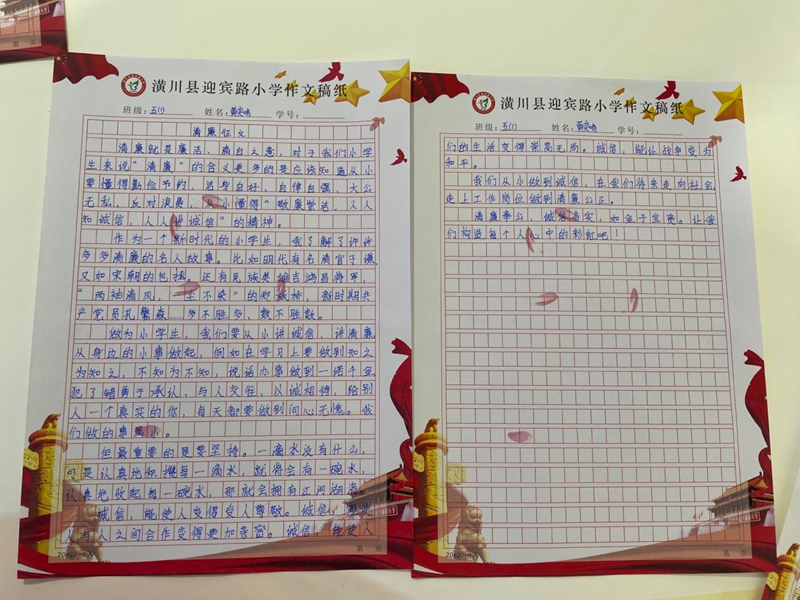 潢川县迎宾路小学作文稿纸
班级：五(1) 姓名： 学号：
清廉征文
清廉就是廉洁，清白之意，对于我们小学
生来说"清廉"的含义更多的是应该知道从小
要懂得勤俭节约，洁身自好，自律自强，大公
无私，反对浪费，从小懂得"敬廉崇洁，人人
知诚信，人人讲诚信"的精神。
作为一个新时代的小学生，我了解了许许
多多清廉的名人故事。比如明代有名清官于谦
又如宋朝的包拯，还有民族英雄吉鸿昌将军，
"两袖清风，一尘不染"的郑板桥，新时期共
产党员孔繁森……多不胜多，数不胜数。
做为小学生，我们要从小讲诚信，讲清廉
从身边的小事做起，例如在学习上要做到知之
为知之，不知为不知，说话办事做到一诺千金
犯了错勇于承认、与人交往、以诚相待，给别
人一个真实的你，每天都要做到问心无愧。我
们做的事虽小。
但最重要的是要坚持。一滴水没有什么，
可是认真地积攒每一滴水，就将会有一碗水，
认真地收起每一碗水，那就会拥有江河湖海。
诚信，能使人变得受人尊敬。诚信，能使
人与人之间合作变得更加亲密。诚信，能使人
20×20=400
第 页
潢川县迎宾路小学作文稿纸
班级：五(1) 姓名： 学号：
们的生活变得崇高无尚。诚信，能让战争变为
和平。
我们从小做到诚信，在我们将来走向社会，
走上工作岗位做到清廉公正。
清廉奉公，诚信道实，如金子宝贵。让我
们构造每个人心中的彩虹吧！
20×20=400
第 页